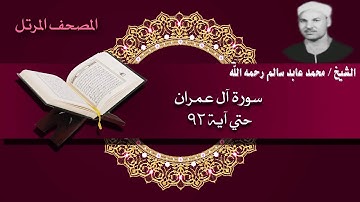 المصحف المرتل
الشيخ / محمد عابد سالم رحمه الله
سورة آل عمران
حتي آية ٩٢